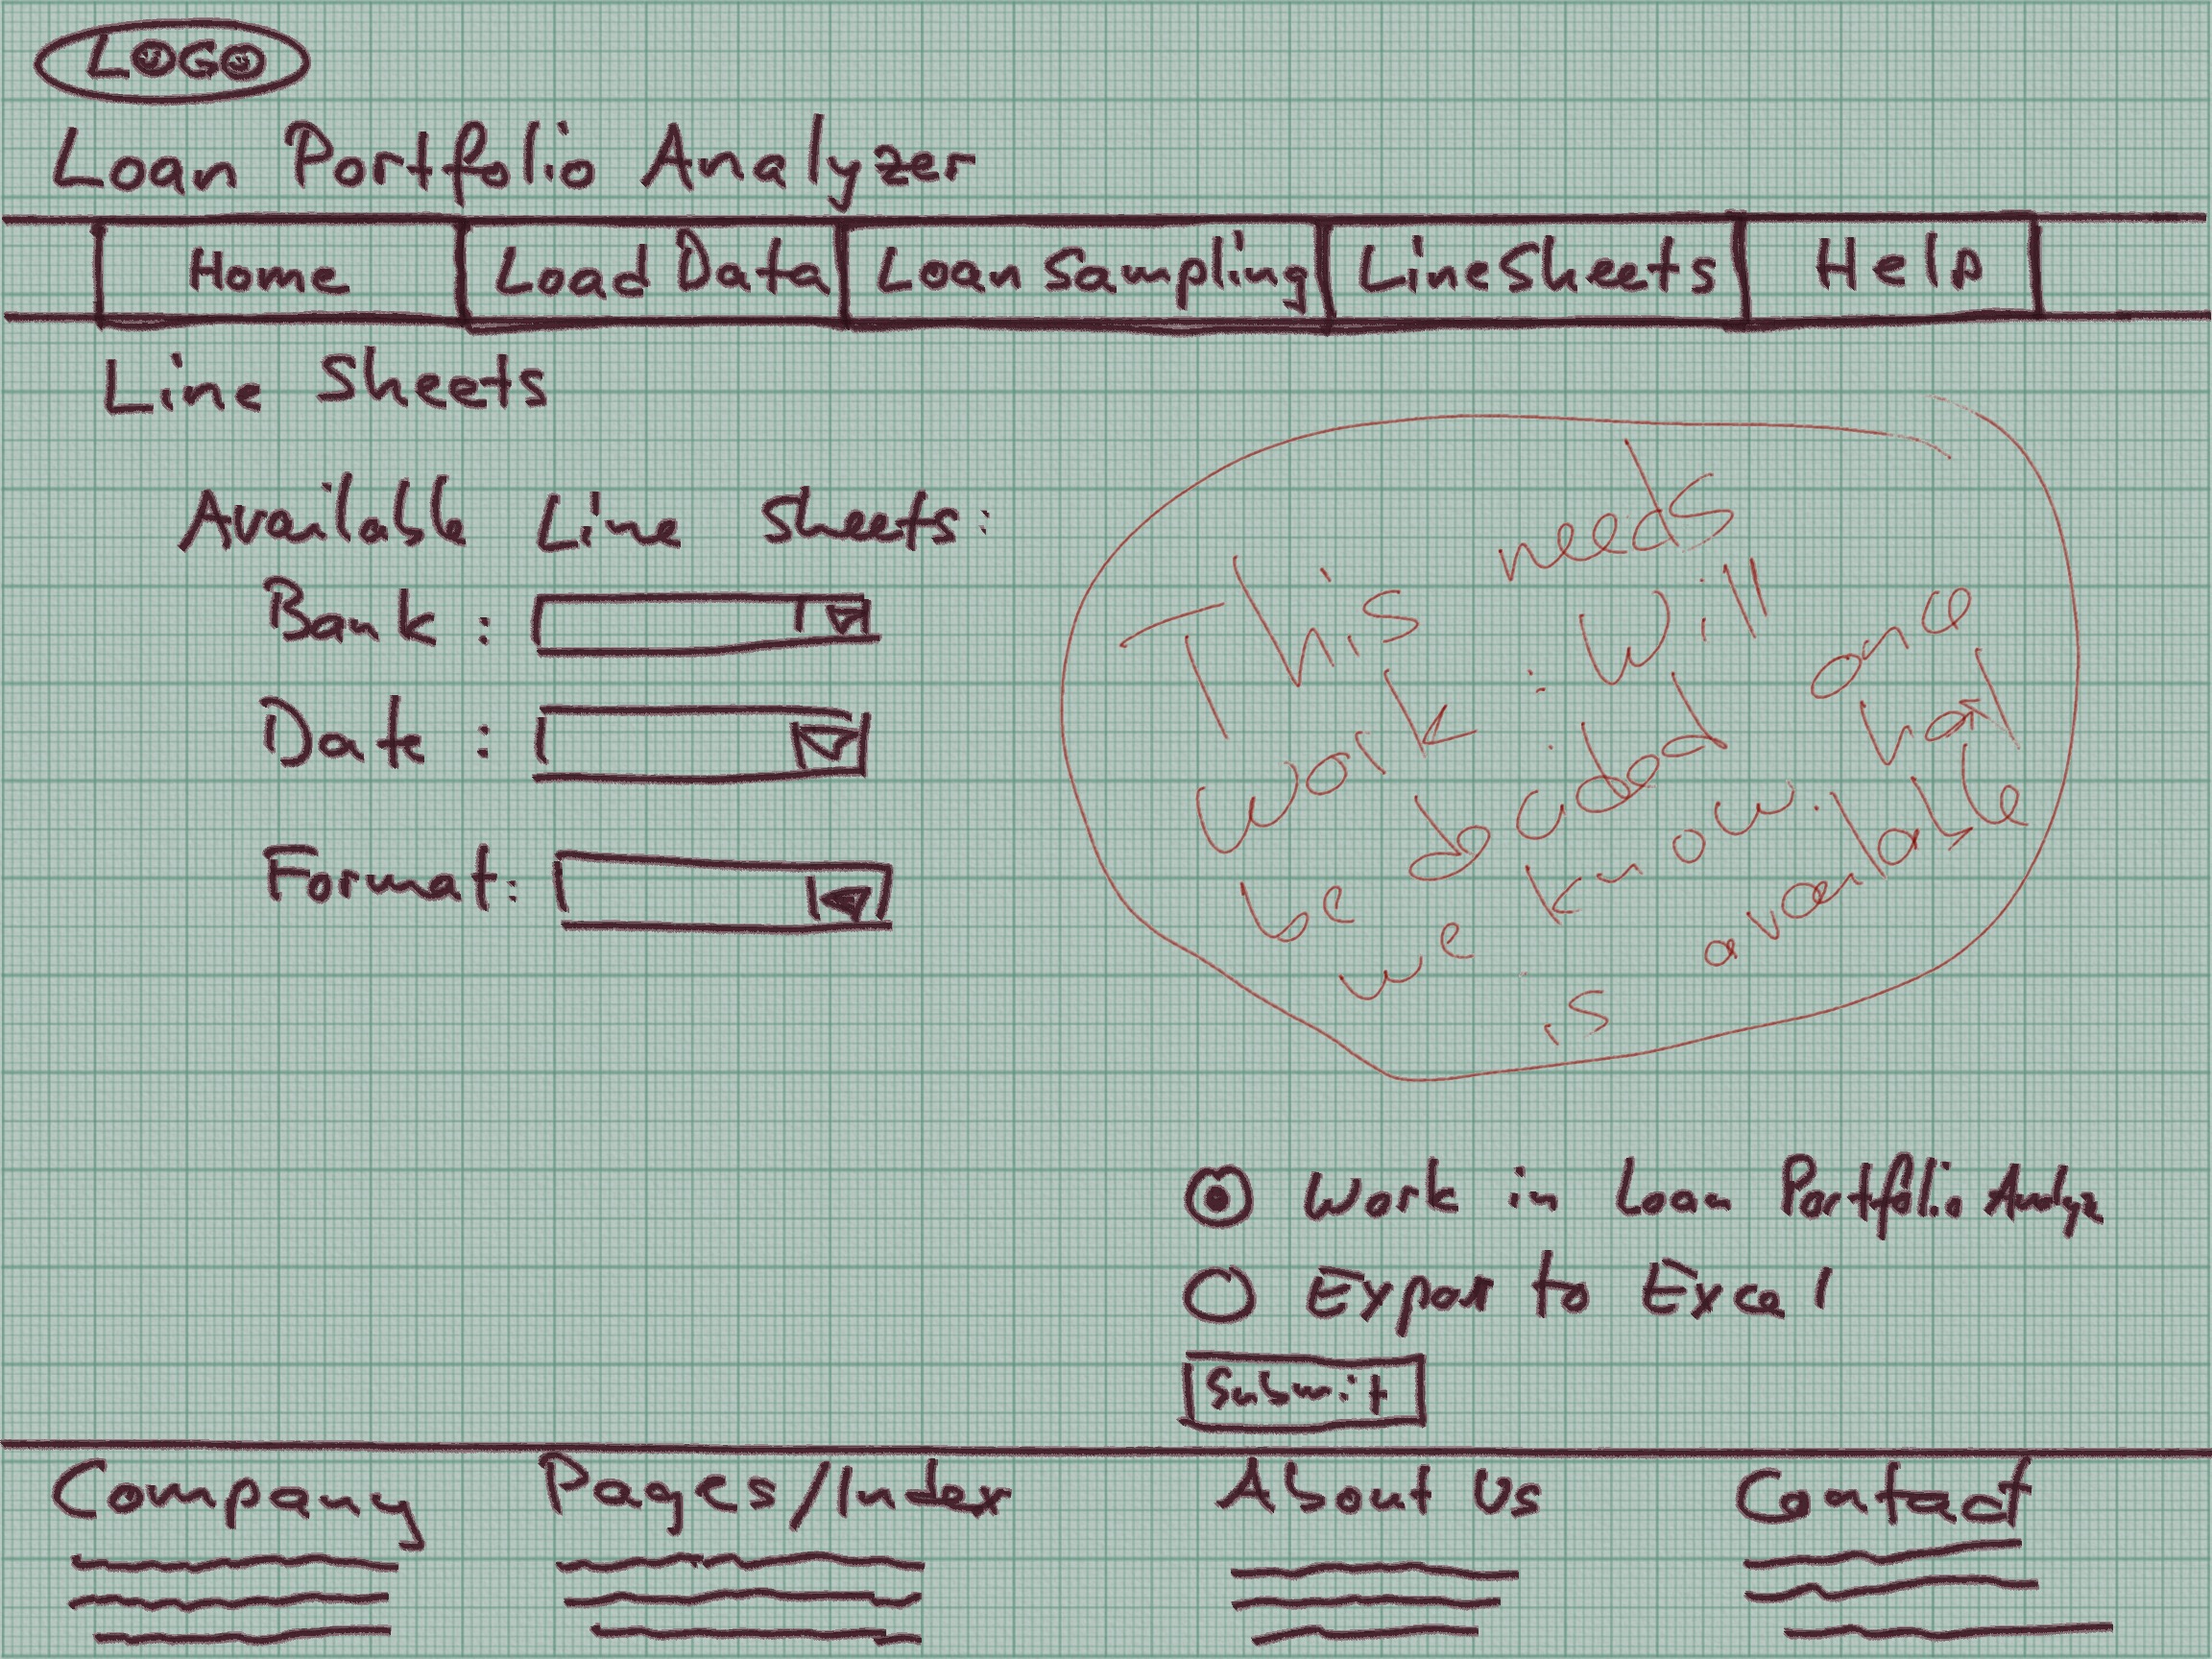 LOGO
Loan Portfolio Analyzer
Home Load Data Loan Sampling Line Sheets Help
Line Sheets
Available Line Sheets:
Bank:
Date:
Format:
This needs
work: will
be decided once
we know what
is available
Work in Loan Portfolio Analyz
Export to Excel
Submit
Company Pages/Index About Us Contact